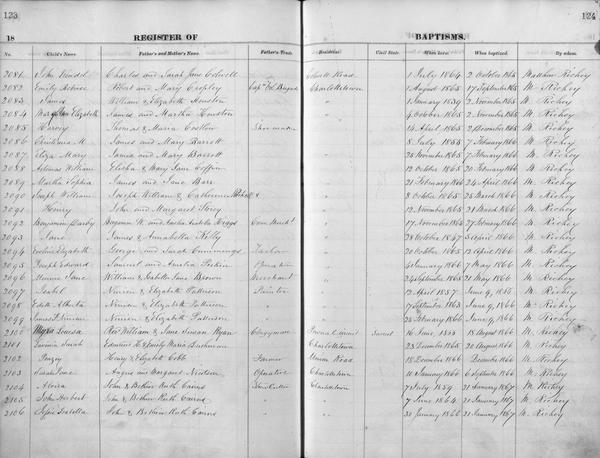 123
124
18 REGISTER OF BAPTISMS.
No. Child's Name. Father's and Mother's Name. Father's Trade. Residence. Civil State. When born. When baptized. By whom.
2081 John Charles and Sarah Jane Road 1 July 1864 2 October 1865 Matthew Richey
2082 Emily Robert and Mary Cropley Charlottetown 1 August 1865 17 September 1865 M. Richey
2083 James William & Elizabeth Houston " 1 January 1859 2 November 1865 M. Richey
2084 Elizabeth James and Martha Houston " 4 October 1865 2 November 1865 M. Richey
2085 Harvey Thomas & Maria Shoemaker " 14 April 1865 2 December 1865 M. Richey
2086 Christiana M. James and Mary Barrett " 8 July 1858 7 February 1866 M. Richey
2087 Eliza Mary James and Mary Barrett " 25 November 1865 7 February 1866 M. Richey
2088 William Elisha & Mary Jane Coffin " 12 October 1865 20 February 1866 M. Richey
2089 Martha Sophia James and Jane Barr " 21 February 1866 24 April 1866 M. Richey
2090 Joseph William Joseph William & Catherine " 8 October 1865 25 March 1866 M. Richey
2091 Henry John and Margaret Storey " 12 November 1865 21 March 1866 M. Richey
2092 Benjamin Darby Benjamin W. and Higgs Com Merch't " 17 November 1865 27 February 1866 M. Richey
2093 Jane James & Annabella Kelly " 28 October 1847 5 April 1866 M. Richey
2094 Elizabeth George and Sarah Cummings Tailor " 20 October 1865 12 April 1866 M. Richey
2095 Joseph Edward Samuel and Amelia " 4 January 1866 7 May 1866 M. Richey
2096 Jane William & Isabella Jane Brown Merchant " 24 September 1865 21 May 1866 M. Richey
2097 Isabel Ninian & Elizabeth Patterson Painter " 12 April 1857 June 9, 1866 M. Richey
2098 Edith Alberta Ninian & Elizabeth Patterson " 17 September 1863 June 9, 1866 M. Richey
2099 James Ninian Ninian & Elizabeth Patterson " 25 February 1866 June 9, 1866 M. Richey
2100 Louisa Rev William & Jane Ryan Clergyman 16 June 1855 18 August 1866 M. Richey
2101 Sarah Edmund H. & Emily Maria Charlottetown 23 December 1865 20 August 1866 M. Richey
2102 Henry & Elizabeth Cobb Farmer Union Road 18 December 1866 December 1866 M. Richey
2103 Sarah Jane Angus and Margaret Newton Operative Charlottetown 18 January 1866 6 September 1866 M. Richey
2104 Alvira John & Bethiar Ruth Cairns Charlottetown 7 July 1859 21 January 1867 M. Richey
2105 John Herbert John & Bethiar Ruth Cairns 7 June 1864 21 January 1867 M. Richey
2106 Isabella John & Bethiar Ruth Cairns 30 January 1866 21 January 1867 M. Richey